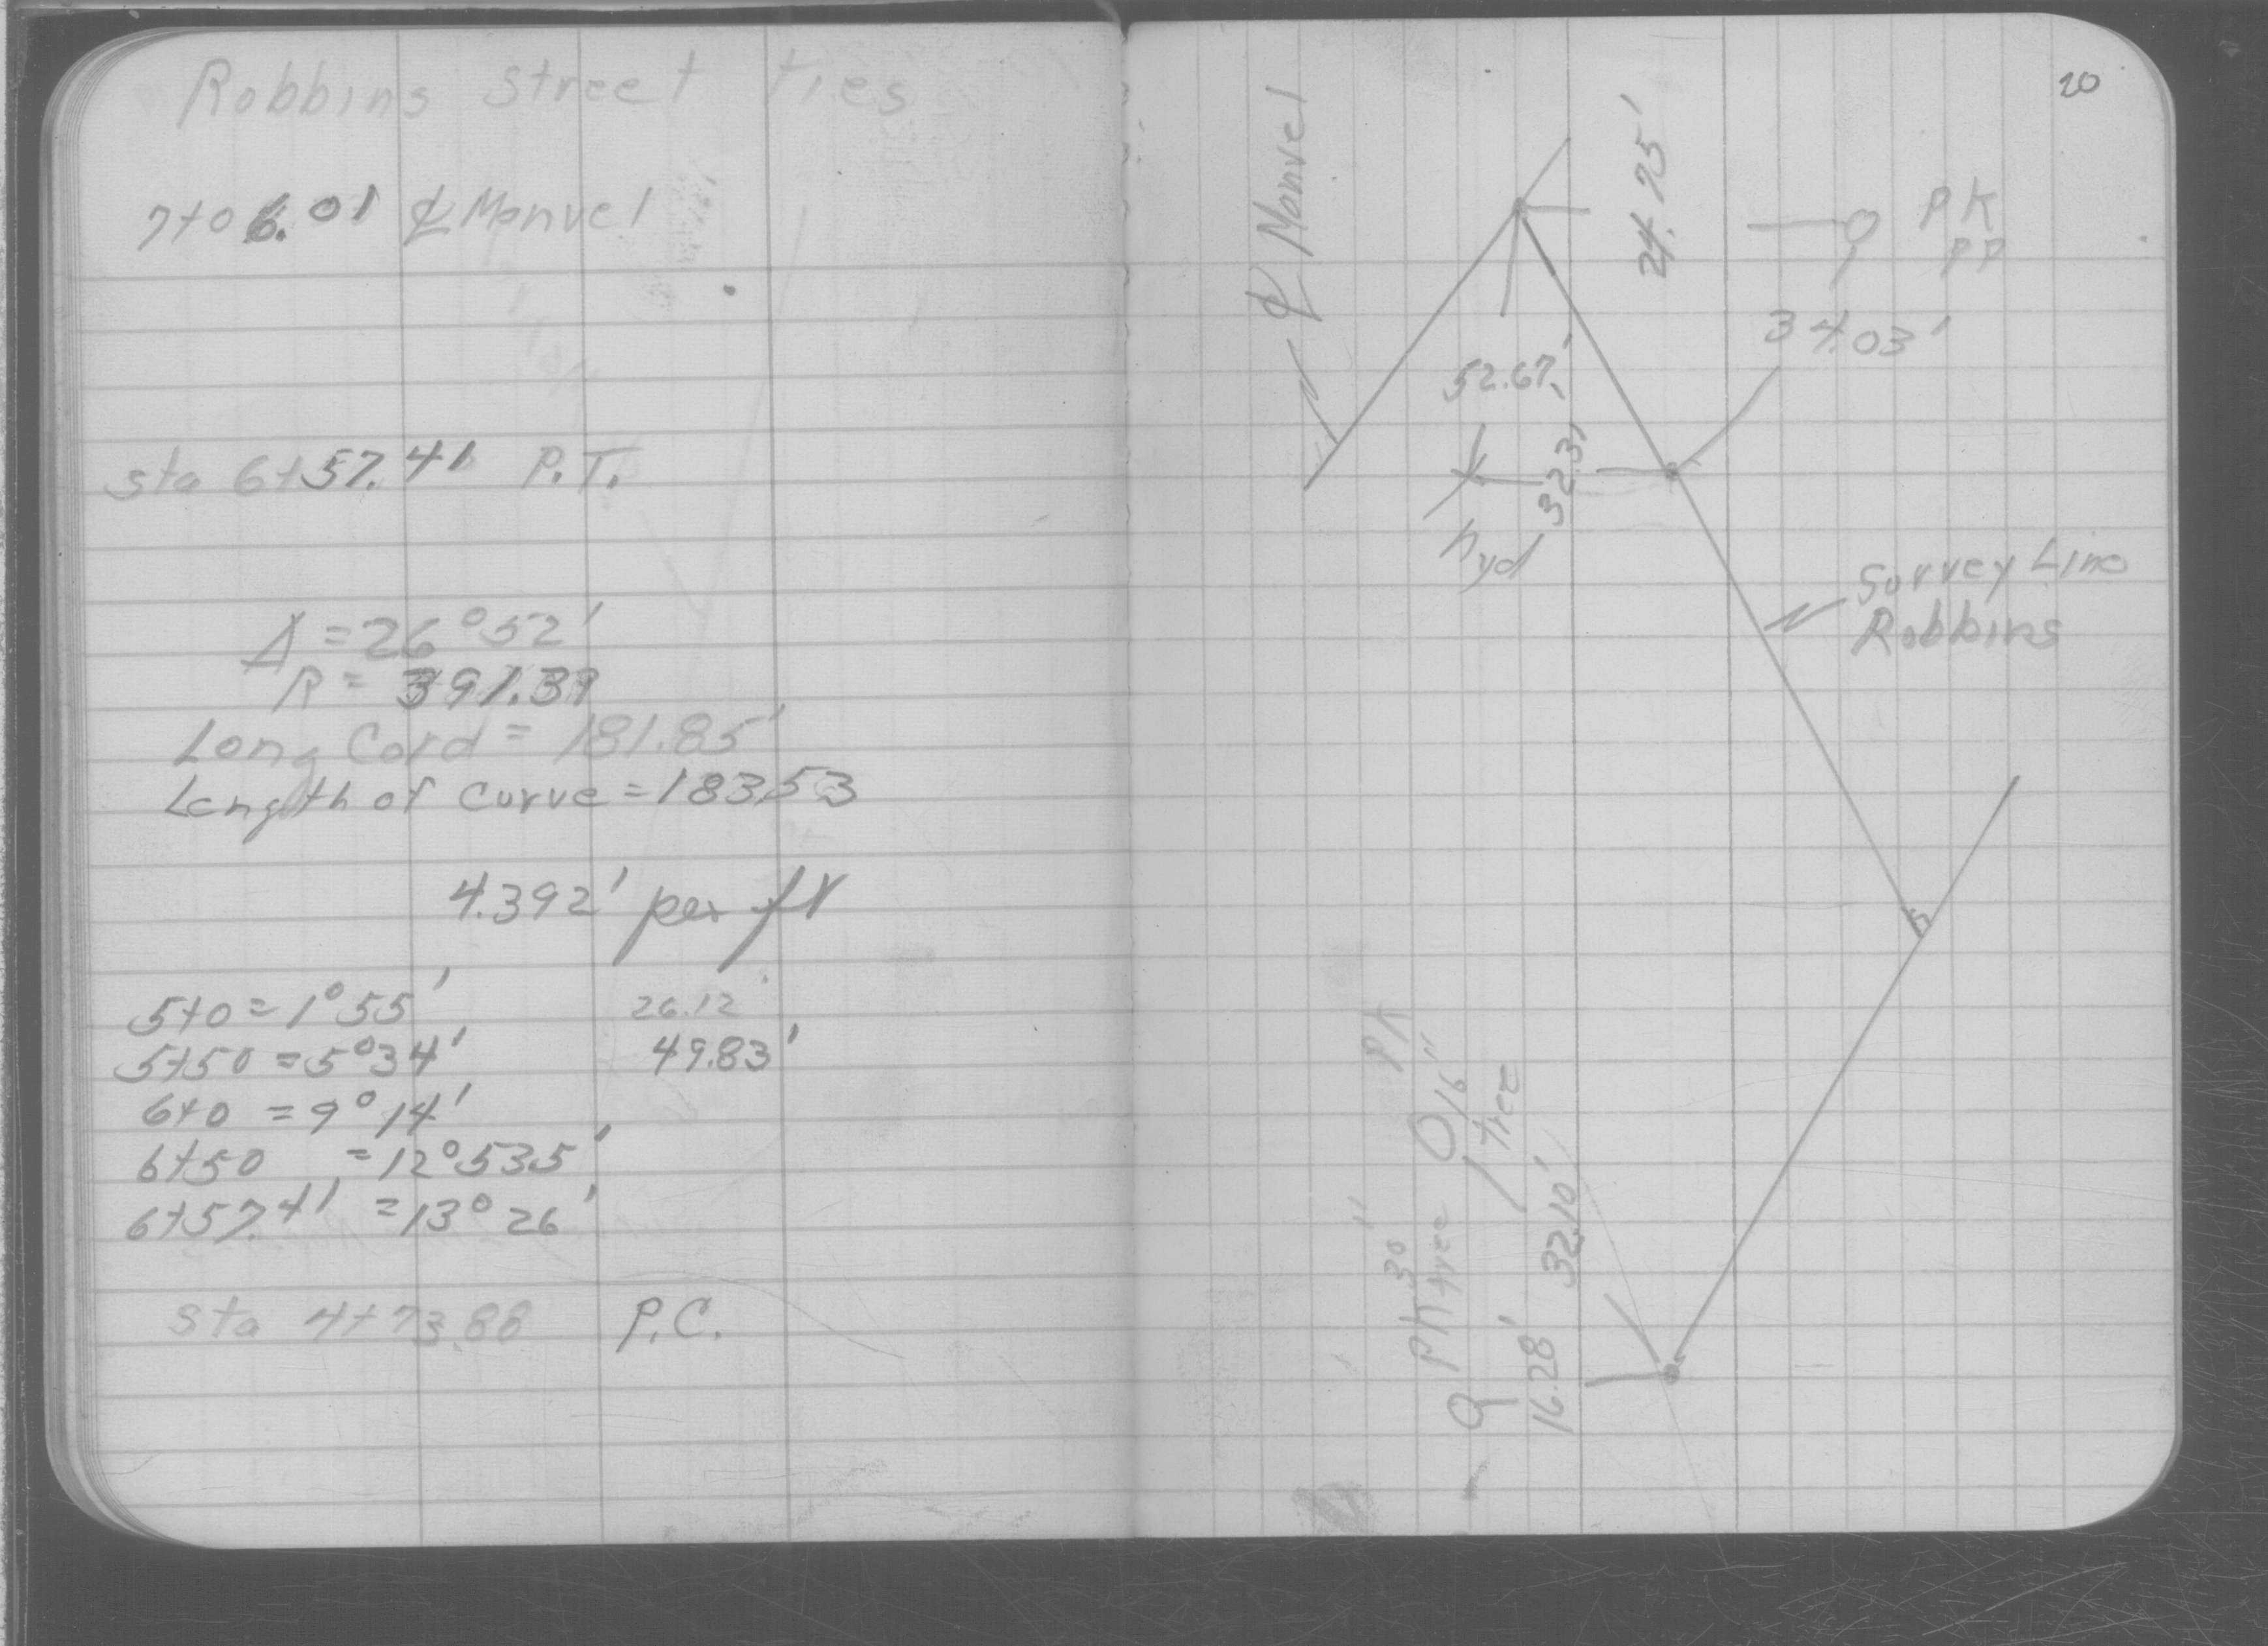 Robbins Street Ties
7+06.01 ℄ Manvel
Sta 6+57.41 P.T.
Δ = 26°52'
R = 391.39
Long Cord = 181.85'
Length of Curve = 183.53
4.392' per ft
5+0 = 1°55' 26.12'
5+50 = 5°34' 49.83'
6+0 = 9°14'
6+50 = 12°53.5'
6+57.41 = 13°26'
Sta 4+73.88 P.C.
20
℄ Manvel
24.25'
PK
PP
34.03'
52.67'
32.31
hyd
Survey Line
Robbins
PK
16"
Tree
32.10'
30"
PK tree
16.28'